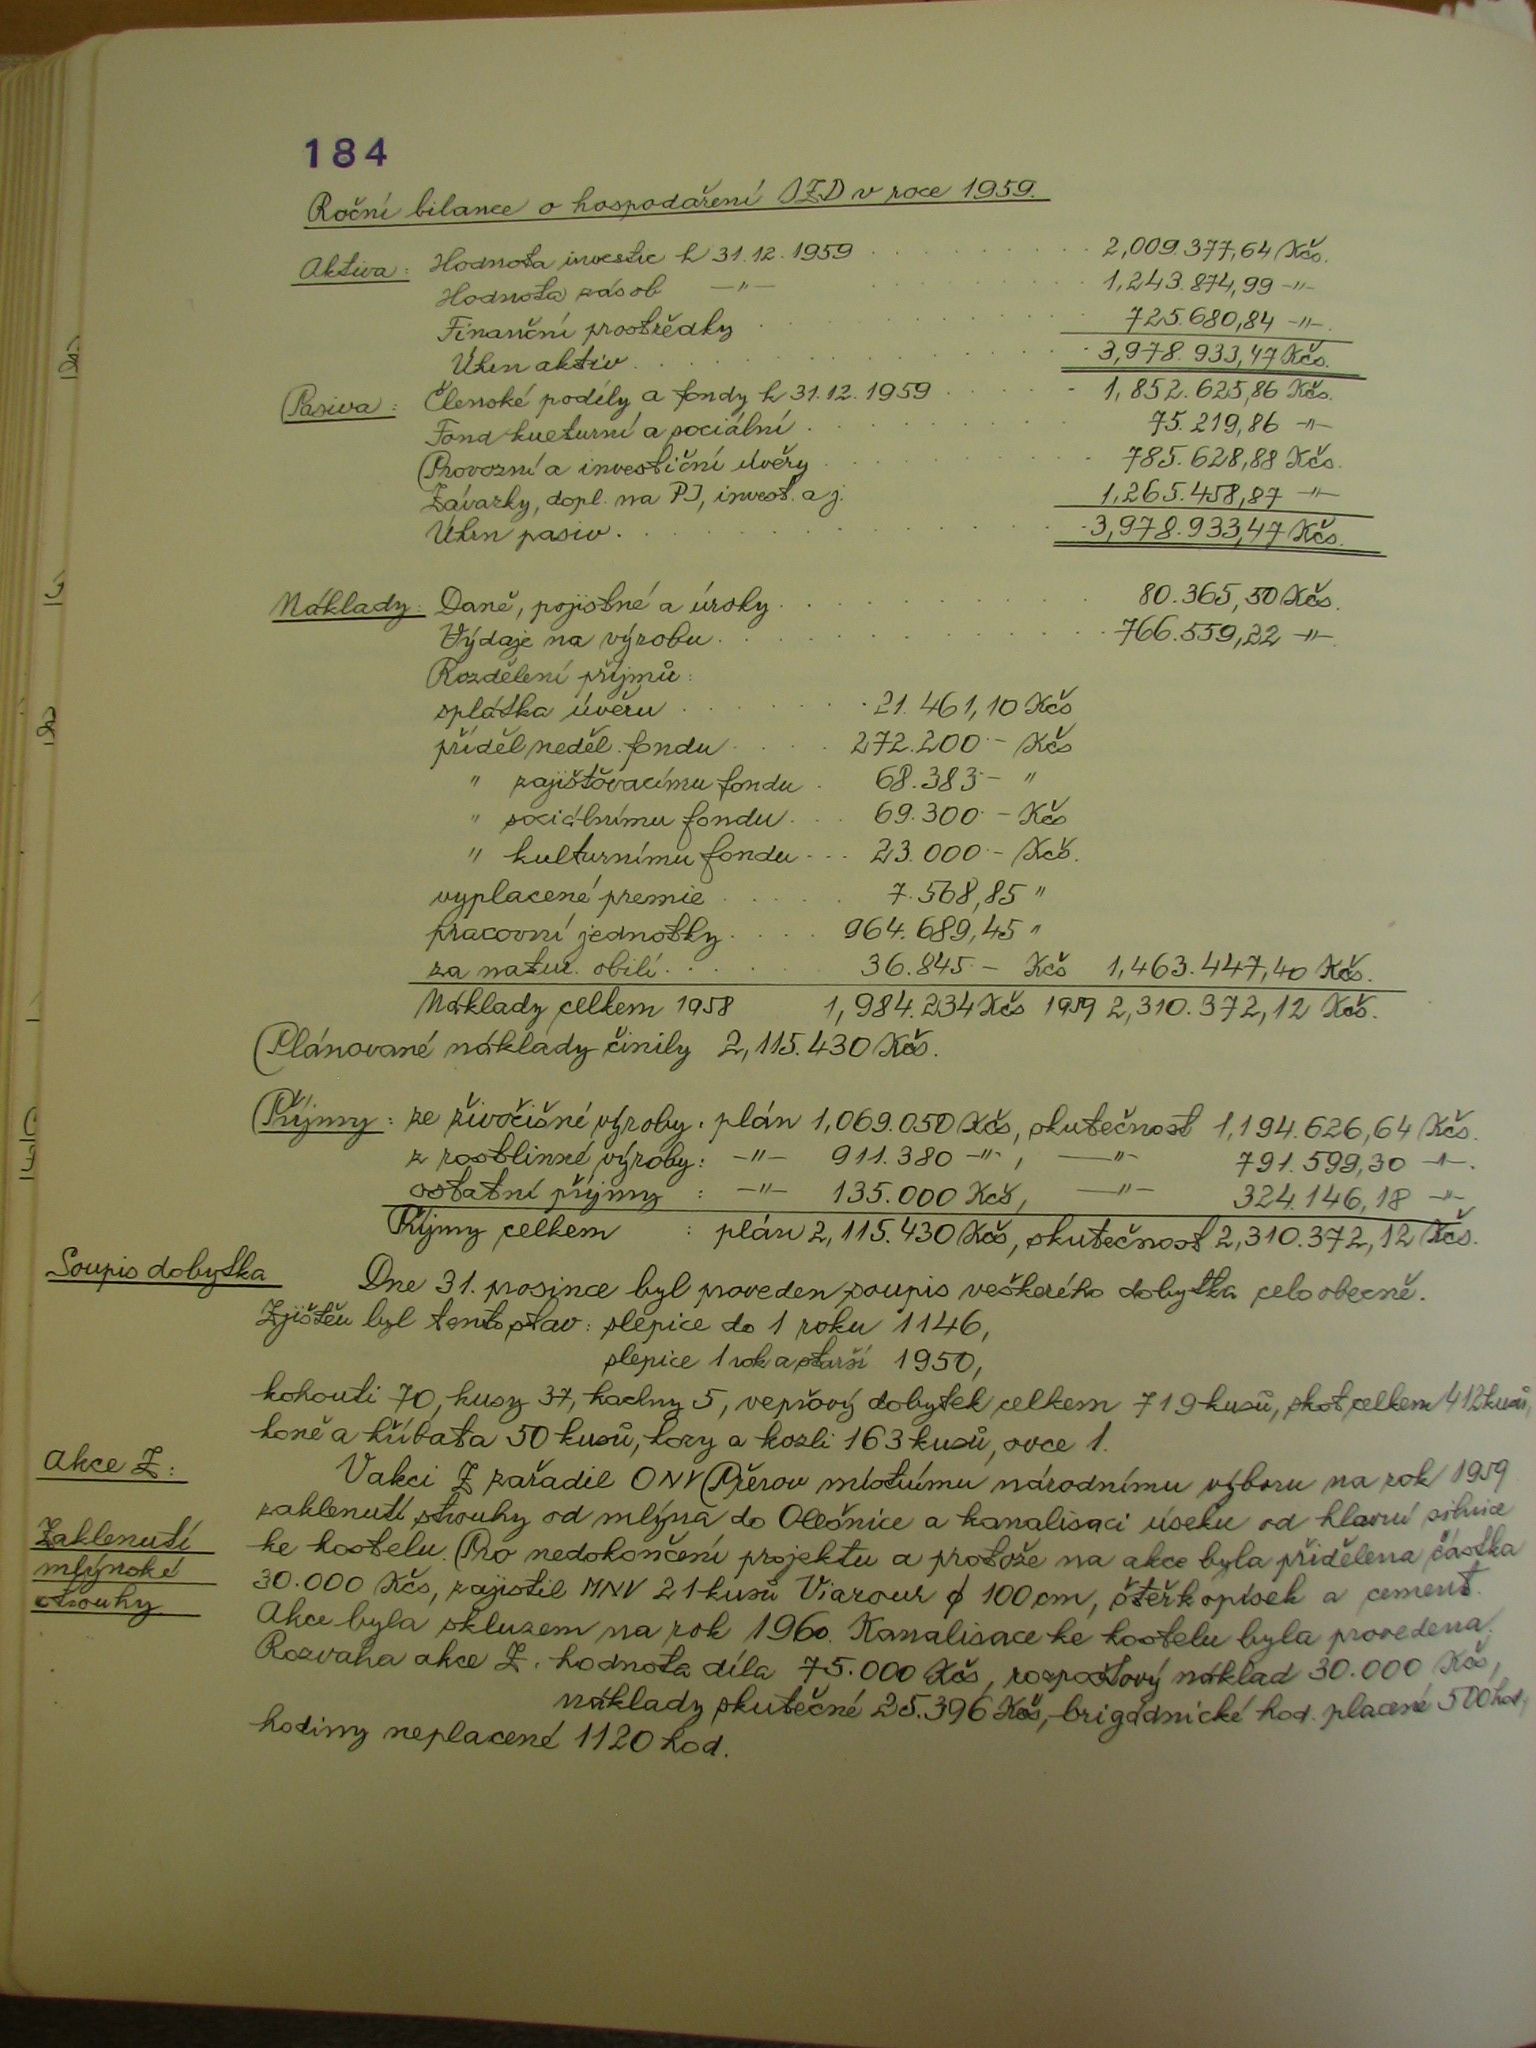 184
Roční bilance o hospodaření JZD v roce 1959.
Aktiva: Hodnota investic k 31.12.1959 2,009.377,64 Kčs.
Hodnota zásob —"— 1,243.874,99 —"—
Finanční prostředky 725.680,84 —"—.
Úhrn aktiv 3,978.933,47 Kčs.
Pasiva: Členské podíly a fondy k 31.12.1959 1,852.625,86 Kčs.
Fond kulturní a sociální 75.219,86 —"—
Provozní a investiční úvěry 785.628,88 Kčs.
Závazky, dopl. na PJ, invest. a j. 1,265.458,87 —"—
Úhrn pasiv 3,978.933,47 Kčs.
Náklady: Daně, pojistné a úroky 80.365,50 Kčs.
Výdaje na výrobu 766.559,22 —"—.
Rozdělení příjmů:
splátka úvěru 21.461,10 Kčs
příděl neděl. fondu 272.200·— Kčs
" zajišťovacímu fondu 68.383·— "
" sociálnímu fondu 69.300·— Kčs
" kulturnímu fondu 23.000·— Kčs.
vyplacené premie 7.568,85 "
pracovní jednotky 964.689,45 "
za natur. obilí 36.845·— Kčs 1,463.447,40 Kčs.
Náklady celkem 1958 1,984.234 Kčs 1959 2,310.372,12 Kčs.
Plánované náklady činily 2,115.430 Kčs.
Příjmy: ze živočišné výroby: plán 1,069.050 Kčs, skutečnost 1,194.626,64 Kčs.
z rostlinné výroby: —"— 911.380 —"—, —"— 791.599,30 —"—.
ostatní příjmy : —"— 135.000 Kčs, —"— 324.146,18 —"—
Příjmy celkem : plán 2,115.430 Kčs, skutečnost 2,310.372,12 Kčs.
Soupis dobytka Dne 31. prosince byl proveden soupis veškerého dobytka celoobecně.
Zjištěn byl tento stav: slepice do 1 roku 1146,
slepice 1 rok a starší 1950,
kohouti 70, husy 37, kachny 5, vepřový dobytek celkem 719 kusů, skot celkem 412 kusů,
koně a hříbata 50 kusů, kozy a kozli 163 kusů, ovce 1.
Akce Z: V akci Z zařadil ONV Přerov místnímu národnímu výboru na rok 1959
Zaklenutí zaklenutí strouhy od mlýna do Olešnice a kanalisaci úseku od hlavní silnice
mlýnské ke kostelu. Pro nedokončení projektu a protože na akce byla přidělena částka
strouhy 30.000 Kčs, zajistil MNV 21 kusů Viarour ϕ 100 cm, štěrkopísek a cement.
Akce byla skluzem na rok 1960. Kanalisace ke kostelu byla provedena.
Rozvaha akce Z: hodnota díla 75.000 Kčs, rozpočtový náklad 30.000 Kčs,
náklady skutečné 25.396 Kčs, brigádnické hod. placené 500 hod,
hodiny neplacené 1120 hod.